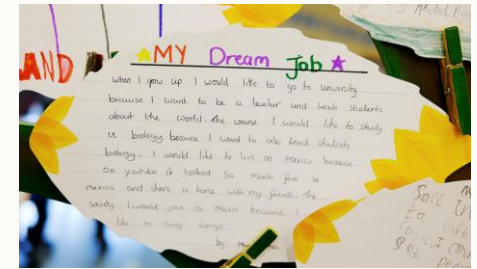 AND
MY Dream Job
When I grow up I would like to go to university
because I want to be a teacher and teach students
about the world. the course I would like to study
is biology because I want to also teach students
biology. I would like to live in Mexico because
on youtube it looked so much fun in
mexico and share a home with my friends. the
society I would join is music because I
like to sing songs.
by